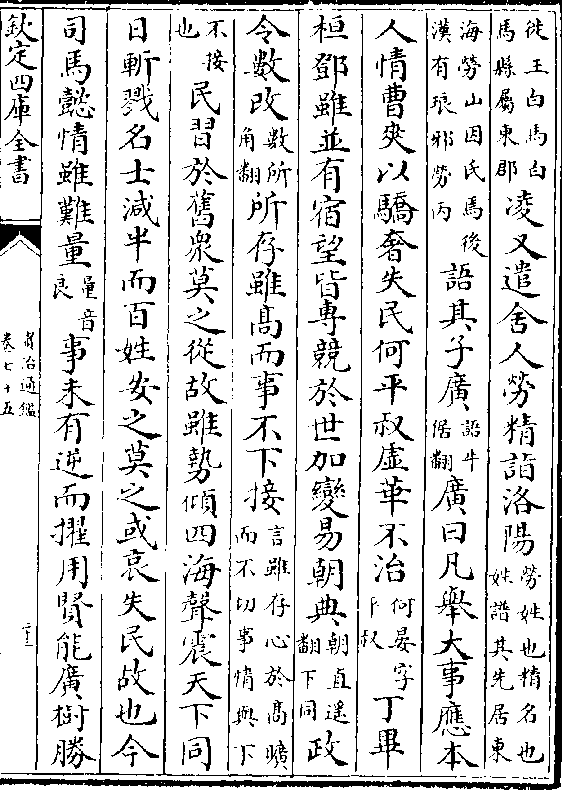 徙王白馬白馬縣屬東郡凌又遣舍人勞精詣洛陽勞姓也精名也姓譜其先居東
海勞山因氏馬後漢有琅邪勞丙語其子廣語牛倨翻廣曰凡舉大事應本
人情曹爽以驕奢失民何平叔虛華不治何晏字平叔丁畢
桓鄧雖並有宿望皆專競於世加變易朝典朝直遥翻下同政
令數改數所角翻所存雖髙而事不下接言雖存心於髙曠而不切事情與下
不接也民習於舊衆莫之從故雖勢傾四海聲震天下同
日斬戮名士減半而百姓安之莫之或哀失民故也今
司馬懿情雖難量量音良事未有逆而擢用賢能廣樹勝
欽定四庫全書
資治通鑑
卷七十五
二十三